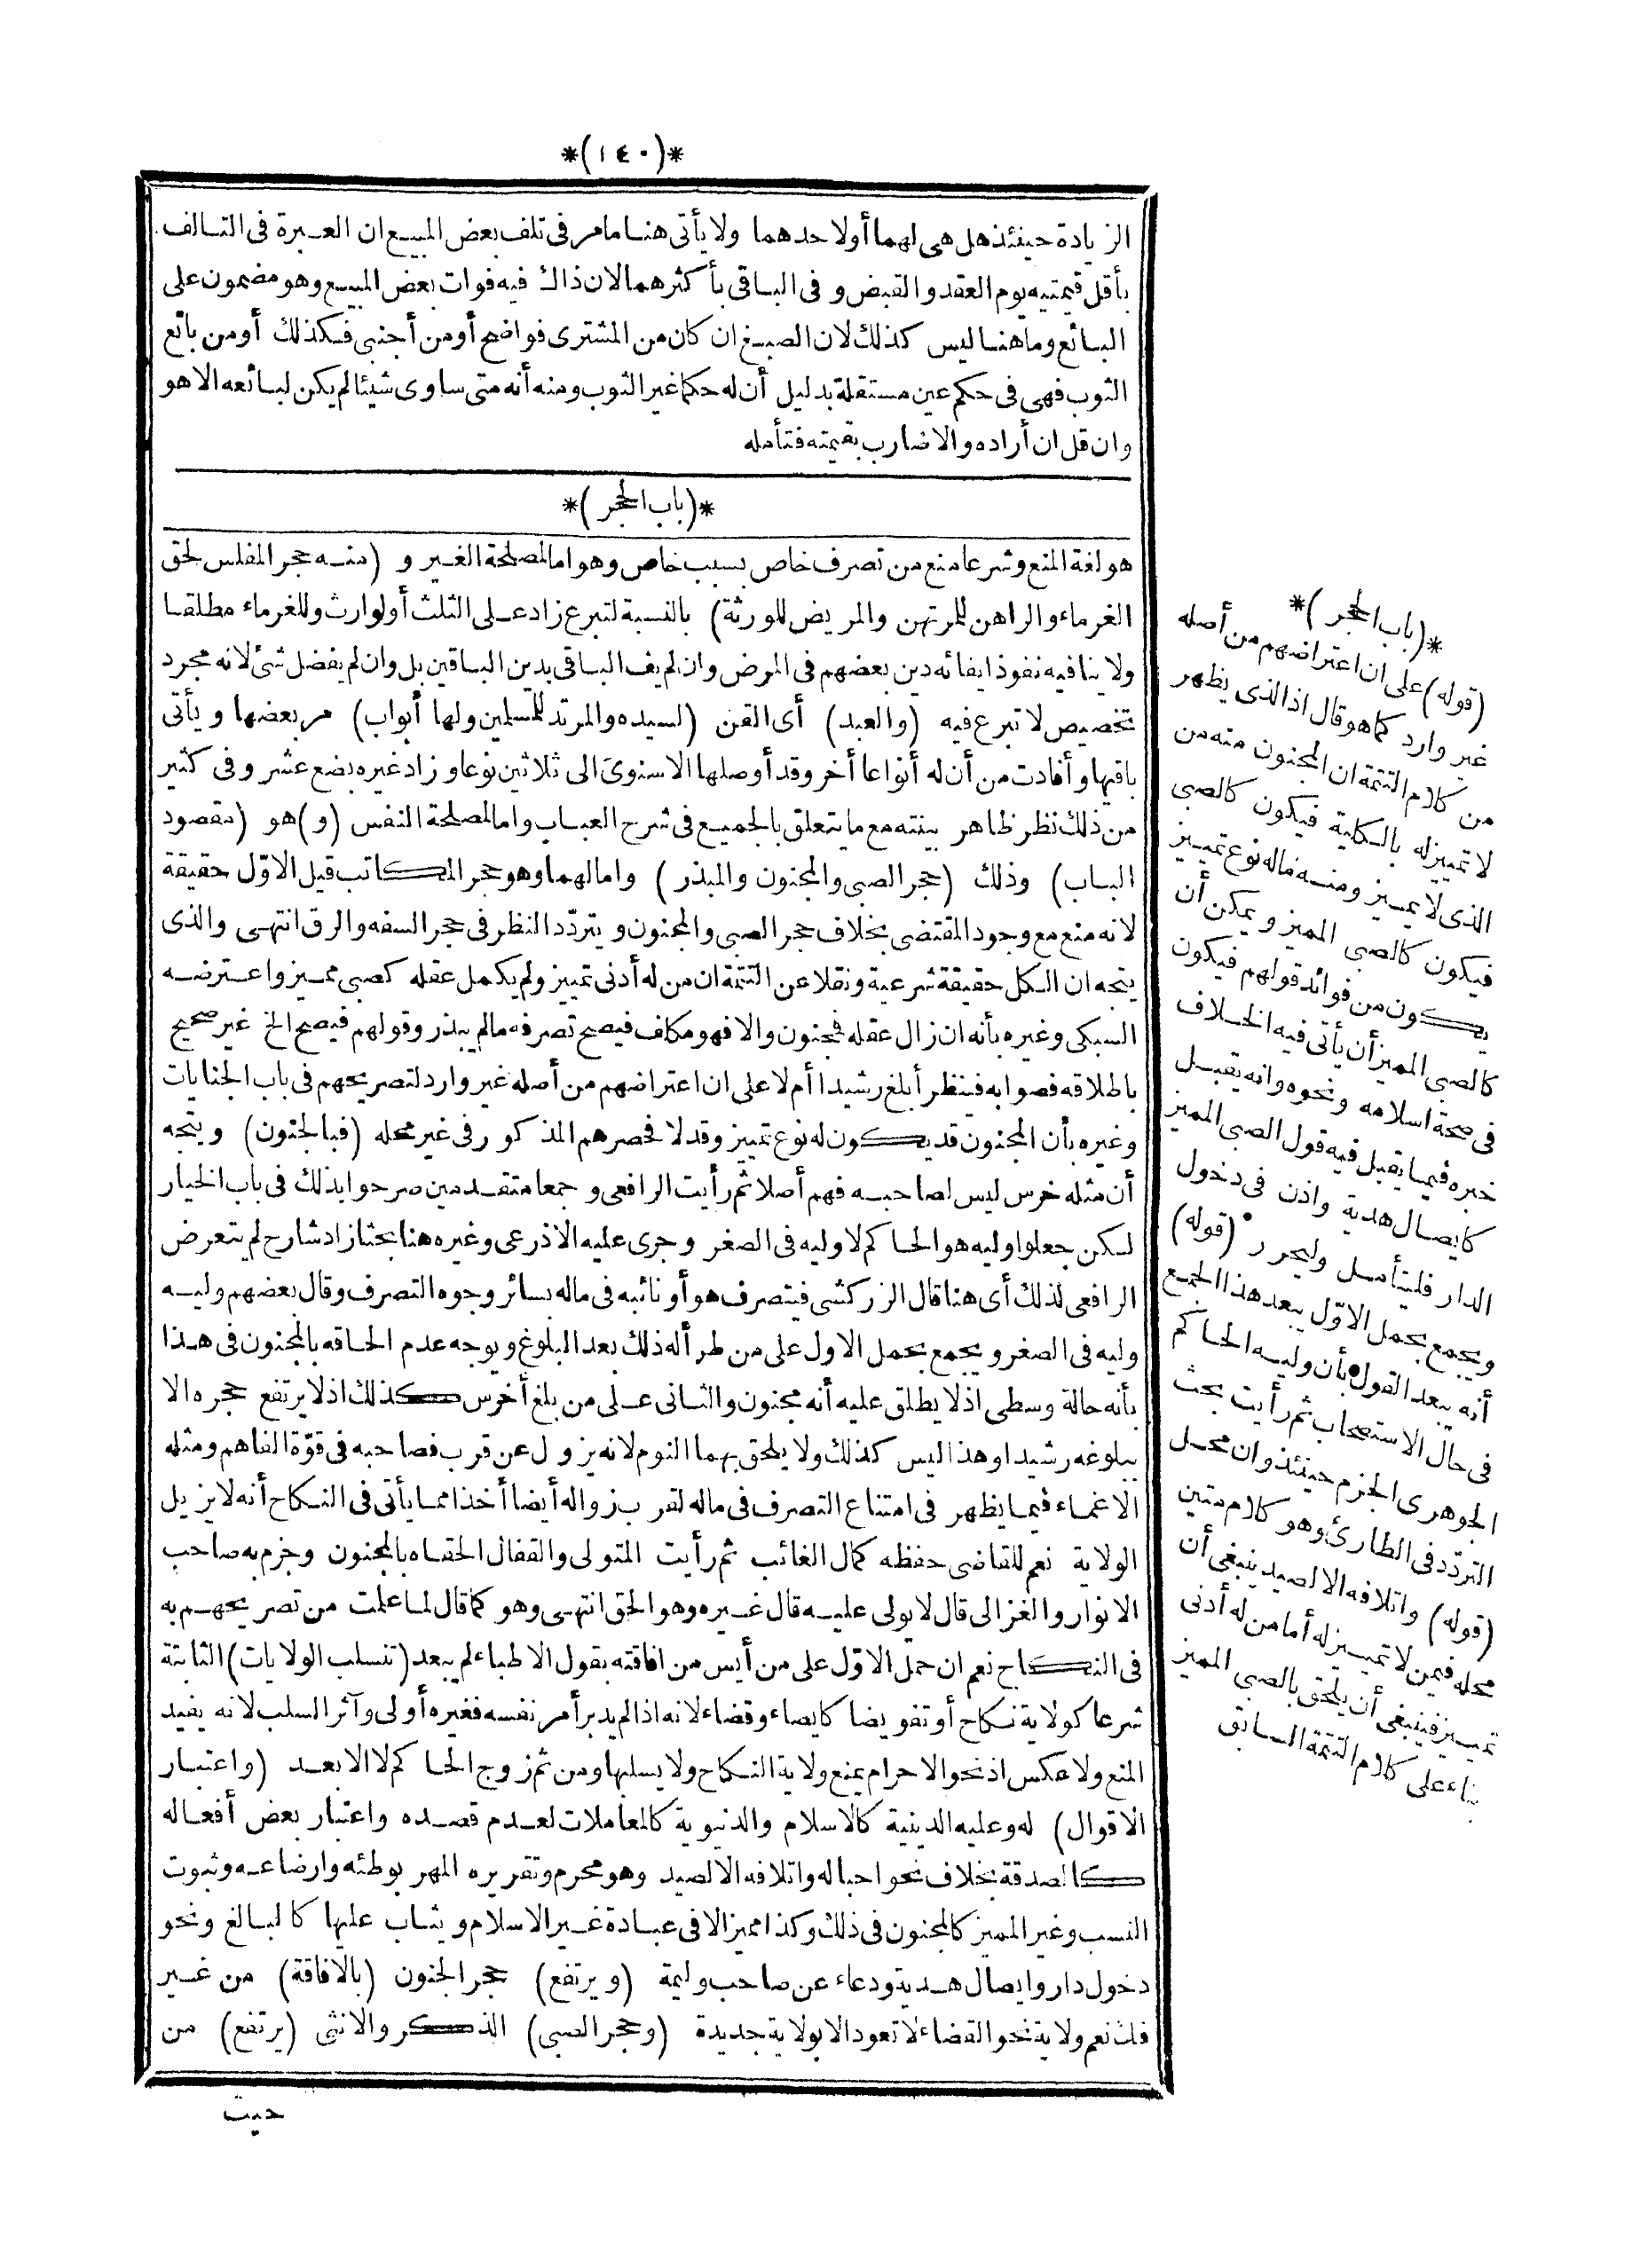 *(١٤٠)*
الزيادة حينئذ هل هى لهما أولاحدهما ولا يأتى هنا مامر فى تلف بعض المبيع ان العبرة فى التالف
بأقل قيمتيه يوم العقد والقبض و فى الباقى بأكثرهما لان ذاك فيه فوات بعض المبيع وهو مضمون على
البائع وما هنا ليس كذلك لان الصبغ ان كان من المشترى فواضح أو من أجنبى فكذلك أو من بائع
الثوب فهى فى حكم عين مستقلة بدليل أن له حكما غير الثوب ومنه أنه متى ساوى شيئا لم يكن لبائعه الا هو
وان قل ان أراده والا ضارب بقيمته فتأمله
*(باب الحجر)*
هو لغة المنع وشرعا منع من تصرف خاص بسبب خاص وهو اما لمصلحة الغير و (منه حجر المفلس لحق
الغرماء والراهن للمرتهن والمريض للورثة) بالنسبة لتبرع زاد على الثلث أو لوارث وللغرماء مطلقا
ولا ينافيه نفوذ ايفائه دين بعضهم فى المرض وان لم يف الباقى بدين الباقين بل وان لم يفضل شئ لانه مجرد
تخصيص لا تبرع فيه (والعبد) أى القن (لسيده والمرتد للمسلمين ولها أبواب) مر بعضها ويأتى
باقيها وأفادت من أن له أنواعا أخر وقد أوصلها الاسنوى الى ثلاثين نوعا وزاد غيره بضع عشر وفى كثير
من ذلك نظر ظاهر بينته مع ما يتعلق بالجميع فى شرح العباب واما لمصلحة النفس (و) هو (مقصود
الباب) وذلك (حجر الصبى والمجنون والمبذر) واما لهما وهو حجر المكاتب قيل الاوّل حقيقة
لانه منع مع وجود المقتضى بخلاف حجر الصبى والمجنون ويتردّد النظر فى حجر السفه والرق انتهى والذى
يتجه ان الكل حقيقة شرعية ونقلا عن التتمة ان من له أدنى تمييز ولم يكمل عقله كصبى مميز واعترضه
السبكى وغيره بأنه ان زال عقله فمجنون والا فهو مكلف فيصح تصرفه مالم يبذر وقولهم فيصح الخ غير صحيح
باطلاقه فصوابه فينظر أبلغ رشيدا أم لا على ان اعتراضهم من أصله غير وارد لتصريحهم فى باب الجنايات
وغيره بأن المجنون قد يكون له نوع تمييز وقد لا فحصرهم المذكور فى غير محله (فبالجنون) ويتجه
أن مثله خرس ليس لصاحبه فهم أصلا ثم رأيت الرافعى وجمعا متقدمين صرحوا بذلك فى باب الخيار
لكن جعلوا وليه هو الحاكم لا وليه فى الصغر وجرى عليه الاذرعى وغيره هنا بحثا زاد شارح لم يتعرض
الرافعى لذلك أى هنا قال الزركشى فيتصرف هو أو نائبه فى ماله بسائر وجوه التصرف وقال بعضهم وليه
وليه فى الصغر ويجمع بحمل الاول على من طرأ له ذلك بعد البلوغ ويوجه عدم الحاقه بالمجنون فى هذا
بأنه حالة وسطى اذ لا يطلق عليه أنه مجنون والثانى على من بلغ أخرس كذلك اذ لا يرتفع حجره الا
ببلوغه رشيدا وهذا ليس كذلك ولا يلحق بهما النوم لانه يزول عن قرب فصاحبه فى قوّة الفاهم ومثله
الاغماء فيما يظهر فى امتناع التصرف فى ماله لقرب زواله أيضا أخذا مما يأتى فى النكاح أنه لا يزيل
الولاية نعم للقاضى حفظه كمال الغائب ثم رأيت المتولى والقفال الحقاه بالمجنون وجزم به صاحب
الانوار والغزالى قال لا يولى عليه قال غيره وهو الحق انتهى وهو كما قال لما علمت من تصريحهم به
فى النكاح نعم ان حمل الاوّل على من أيس من افاقته بقول الاطباء لم يبعد (تنسلب الولايات) الثابتة
شرعا كولاية نكاح أو تفويضا كايصاء وقضاء لانه اذا لم يدبر أمر نفسه فغيره أولى وآثر السلب لانه يفيد
المنع ولا عكس اذ نحو الاحرام يمنع ولاية النكاح ولا يسلبها ومن ثم زوج الحاكم لا الابعد (واعتبار
الاقوال) له وعليه الدينية كالاسلام والدنيوية كالمعاملات لعدم قصده واعتبار بعض أفعاله
كالصدقة بخلاف نحو احباله واتلافه الا لصيد وهو محرم وتقريره المهر بوطئه وارضاعه وثبوت
النسب وغير المميز كالمجنون فى ذلك وكذا مميز الا فى عبادة غير الاسلام ويثاب عليها كالبالغ ونحو
دخول دار وايصال هدية ودعاء عن صاحب وليمة (ويرتفع) حجر الجنون (بالافاقة) من غير
فك نعم ولاية نحو القضاء لا تعود الا بولاية جديدة (وحجر الصبى) الذكر والانثى (يرتفع) من
حيث
*(باب الحجر)*
(قوله) على ان اعتراضهم من أصله
غير وارد كما هو قال اذ الذى يظهر
من كلام التتمة ان المجنون منه من
لا تمييز له بالكلية فيكون كالصبى
الذى لا يميز ومنه ماله نوع تمييز
فيكون كالصبى المميز ويمكن أن
يكون من فوائد قولهم فيكون
كالصبى المميز أن يأتى فيه الخلاف
فى صحة اسلامه ونحوه وانه يقبل
خبره فيما يقبل فيه قول الصبى المميز
كايصال هدية واذن فى دخول
الدار فليتأمل وليحرر (قوله)
ويجمع بحمل الاوّل يبعد هذا الجمع
أنه يبعد القول بأن وليه الحاكم
فى حال الاستصحاب ثم رأيت بحث
الجوهرى الجزم حينئذ وان محل
التردّد فى الطارئ وهو كلام متين
(قوله) واتلافه الا لصيد ينبغى أن
محله فيمن لا تمييز له أما من له أدنى
تمييز فينبغى أن يلحق بالصبى المميز
بناء على كلام التتمة السابق